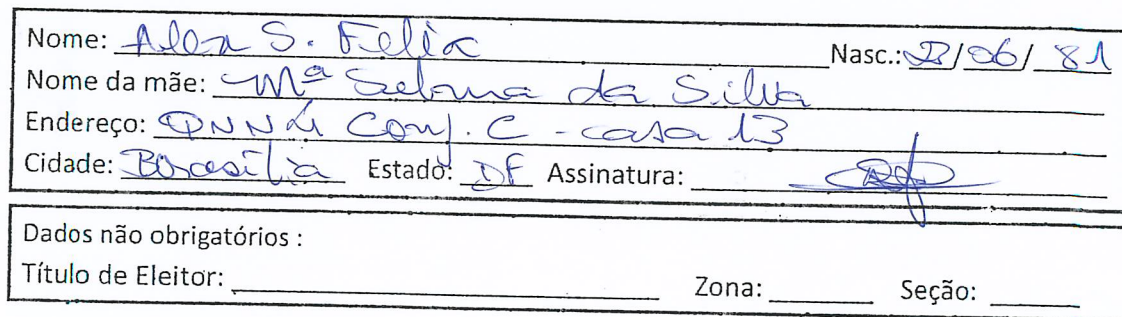 Nome: Alex S. Felix Nasc.: 23/06/81
Nome da mãe: Mª Selma da Silva
Endereço: QNN Conj. C - casa 13
Cidade: Brasília Estado: DF Assinatura:
Dados não obrigatórios :
Título de Eleitor: Zona: Seção: